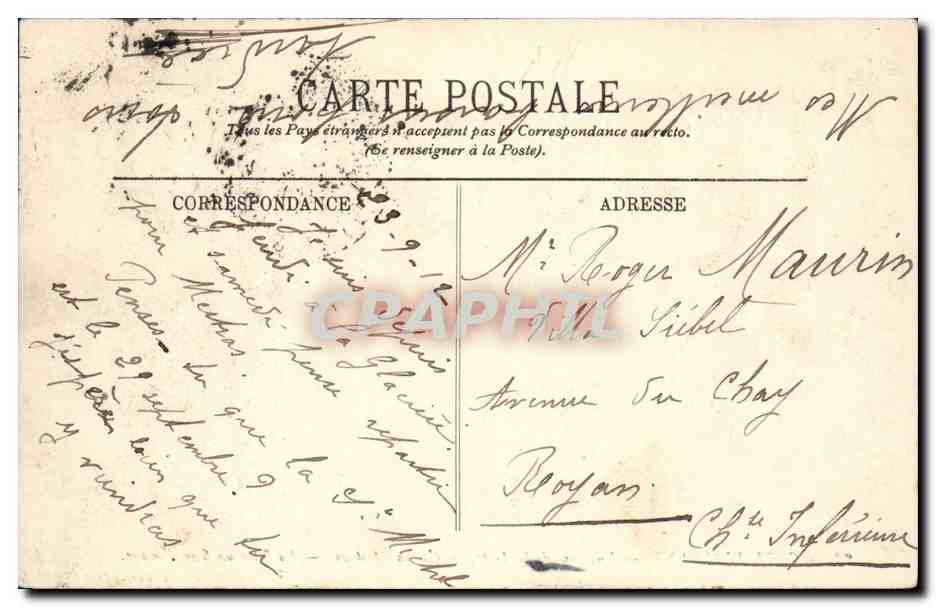 CARTE POSTALE
Tous les Pays étrangers n'acceptent pas la Correspondance au recto.
(Se renseigner à la Poste).
CORRESPONDANCE
ADRESSE
23-9-12
Je suis depuis
Jeudi à la Glacière
et samedi pense repartir
pour Mestras.
Penses-tu que la St Michel
est le 29 septembre.
J'espère bien que tu
y viendras.
Mes meilleurs
Mr Roger Maurin
Villa Siébel
Avenue du Chay
Royan
Chte Inférieure
CPAPHIL